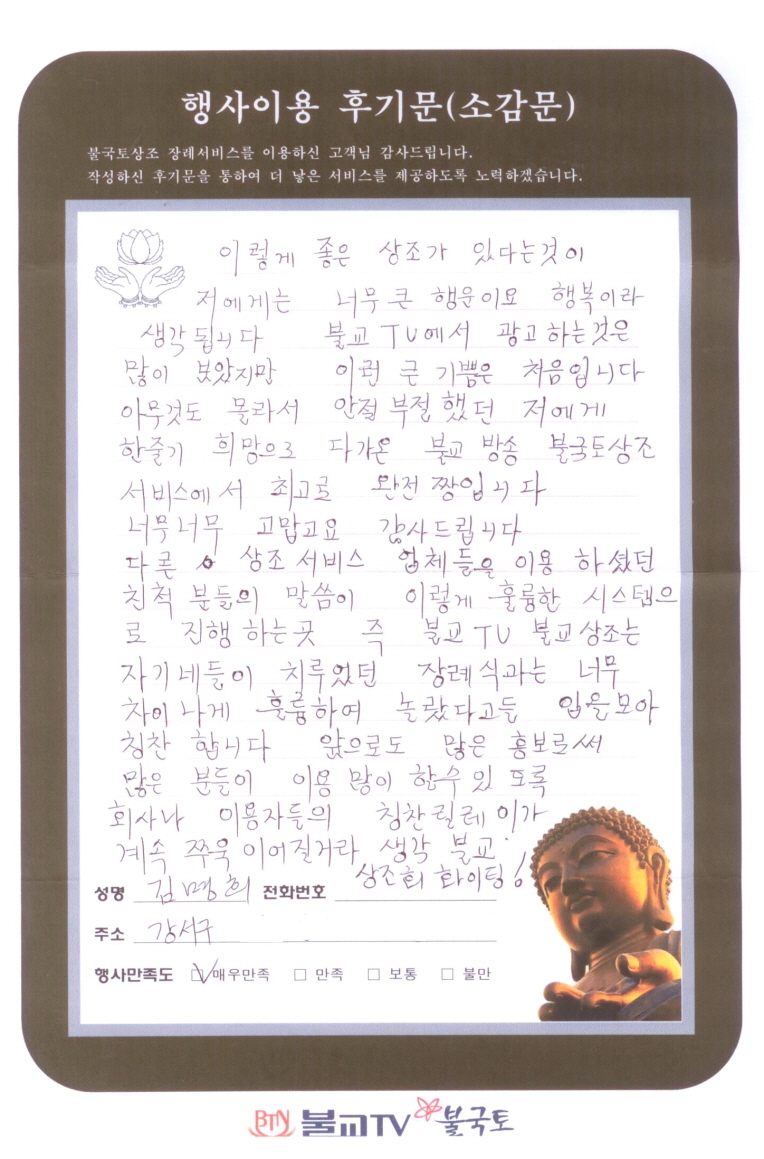 행사이용 후기문(소감문)
불국토상조 장례서비스를 이용하신 고객님 감사드립니다.
작성하신 후기문을 통하여 더 낳은 서비스를 제공하도록 노력하겠습니다.
이렇게 좋은 상조가 있다는것이
저에게는 너무 큰 행운이요 행복이라
생각 됩니다 불교 TV에서 광고 하는것은
많이 보았지만 이런 큰 기쁨은 처음입니다
아무것도 몰라서 안절부절 했던 저에게
한줄기 희망으로 다가온 불교 방송 불국토상조
서비스에서 최고로 완전 짱입니다
너무너무 고맙고요 감사드립니다
다른 상조 서비스 업체들을 이용 하셨던
친척 분들의 말씀이 이렇게 훌륭한 시스템으
로 진행 하는곳 즉 불교 TV 불교상조는
자기네들이 치루었던 장례식과는 너무
차이 나게 훌륭하여 놀랐다고들 입을모아
칭찬 합니다 앞으로도 많은 홍보로써
많은 분들이 이용 많이 할수 있 도록
회사나 이용자들의 칭찬릴레이가
계속 쭈욱 이어질거라 생각 불교
상조회 화이팅!
성명 김명희 전화번호
주소 강서구
행사만족도 매우만족 만족 보통 불만
BTN 불교TV 불국토